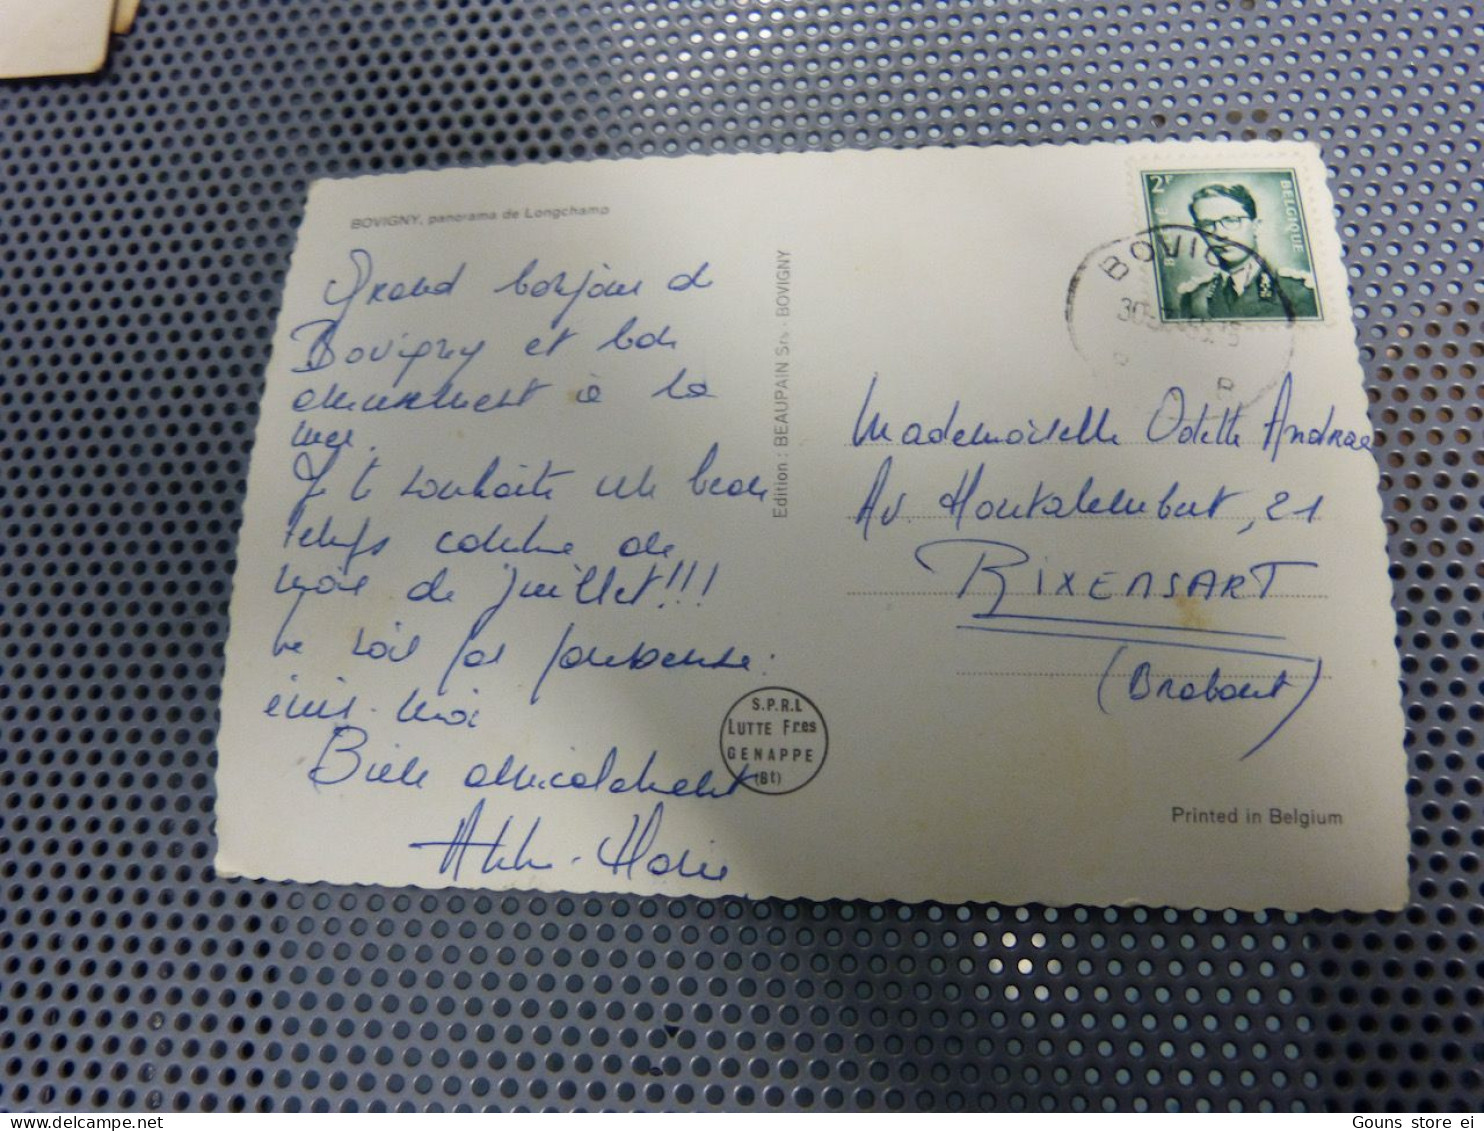 BOVIGNY, panorama de Longchamp
Grand bonjour de
Bovigny et bon
amusement à la
mer.
Je te souhaite un beau
temps comme au
mois de juillet!!!
ne sois pas paresseuse.
écris-moi
Bien amicalement
Anne-Marie
Edition : BEAUPAIN Srs - BOVIGNY
S.P.R.L
LUTTE Fres
GENAPPE
(Bt)
2F
BELGIE
BELGIQUE
BOVIGNY
Mademoiselle Odette Andreae
Av. Montalembert, 21
RIXENSART
(Brabant)
Printed in Belgium
Gouns store ei